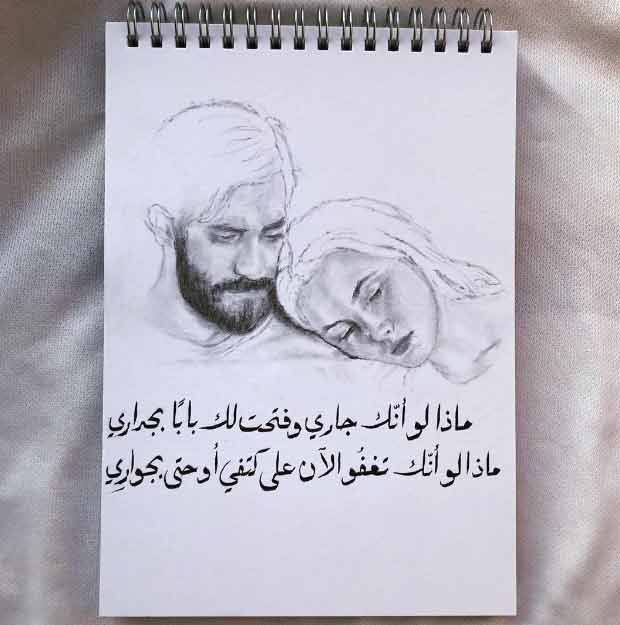 ماذا لو أنّك جاري وفتحت لك بابًا بجداري
ماذا لو أنّك تغفُو الآن على كتفي أو حتى بجواري